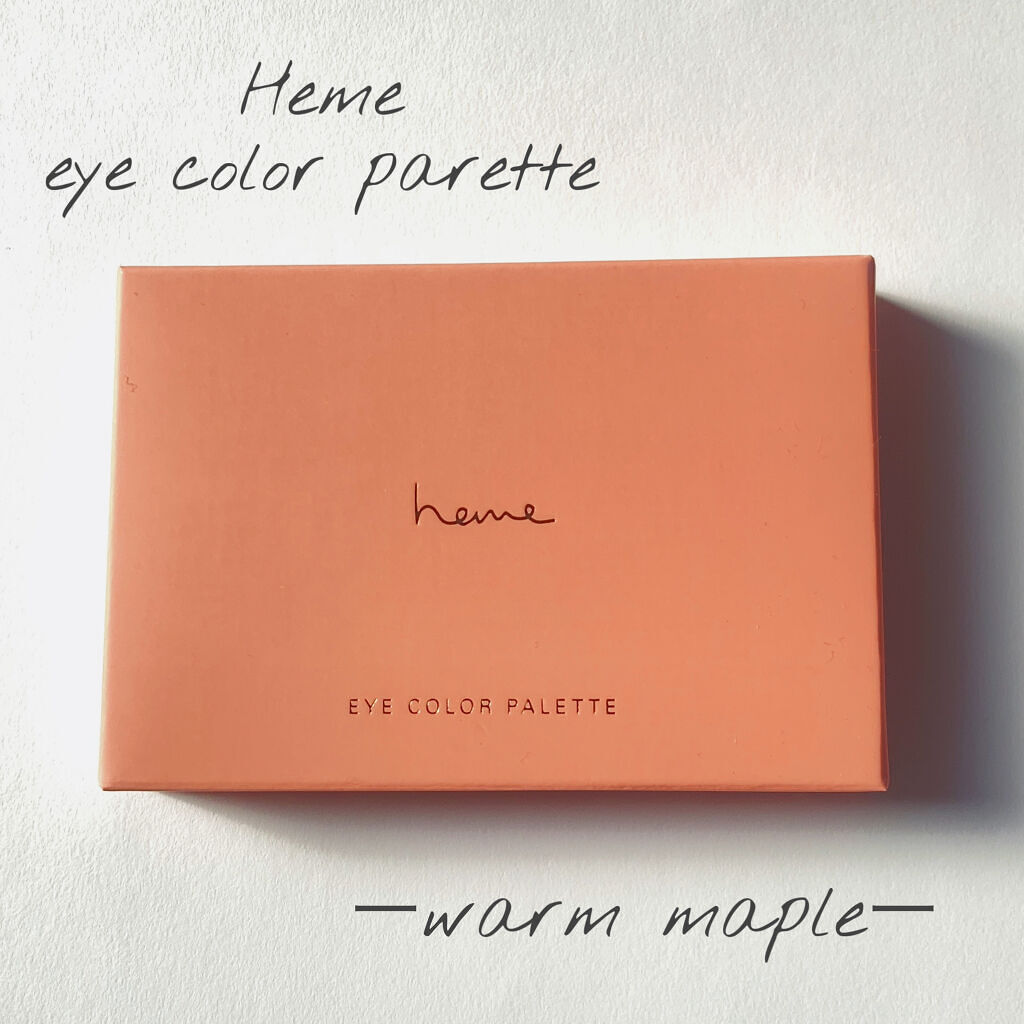 Heme
eye color parette
heme
EYE COLOR PALETTE
—warm maple—